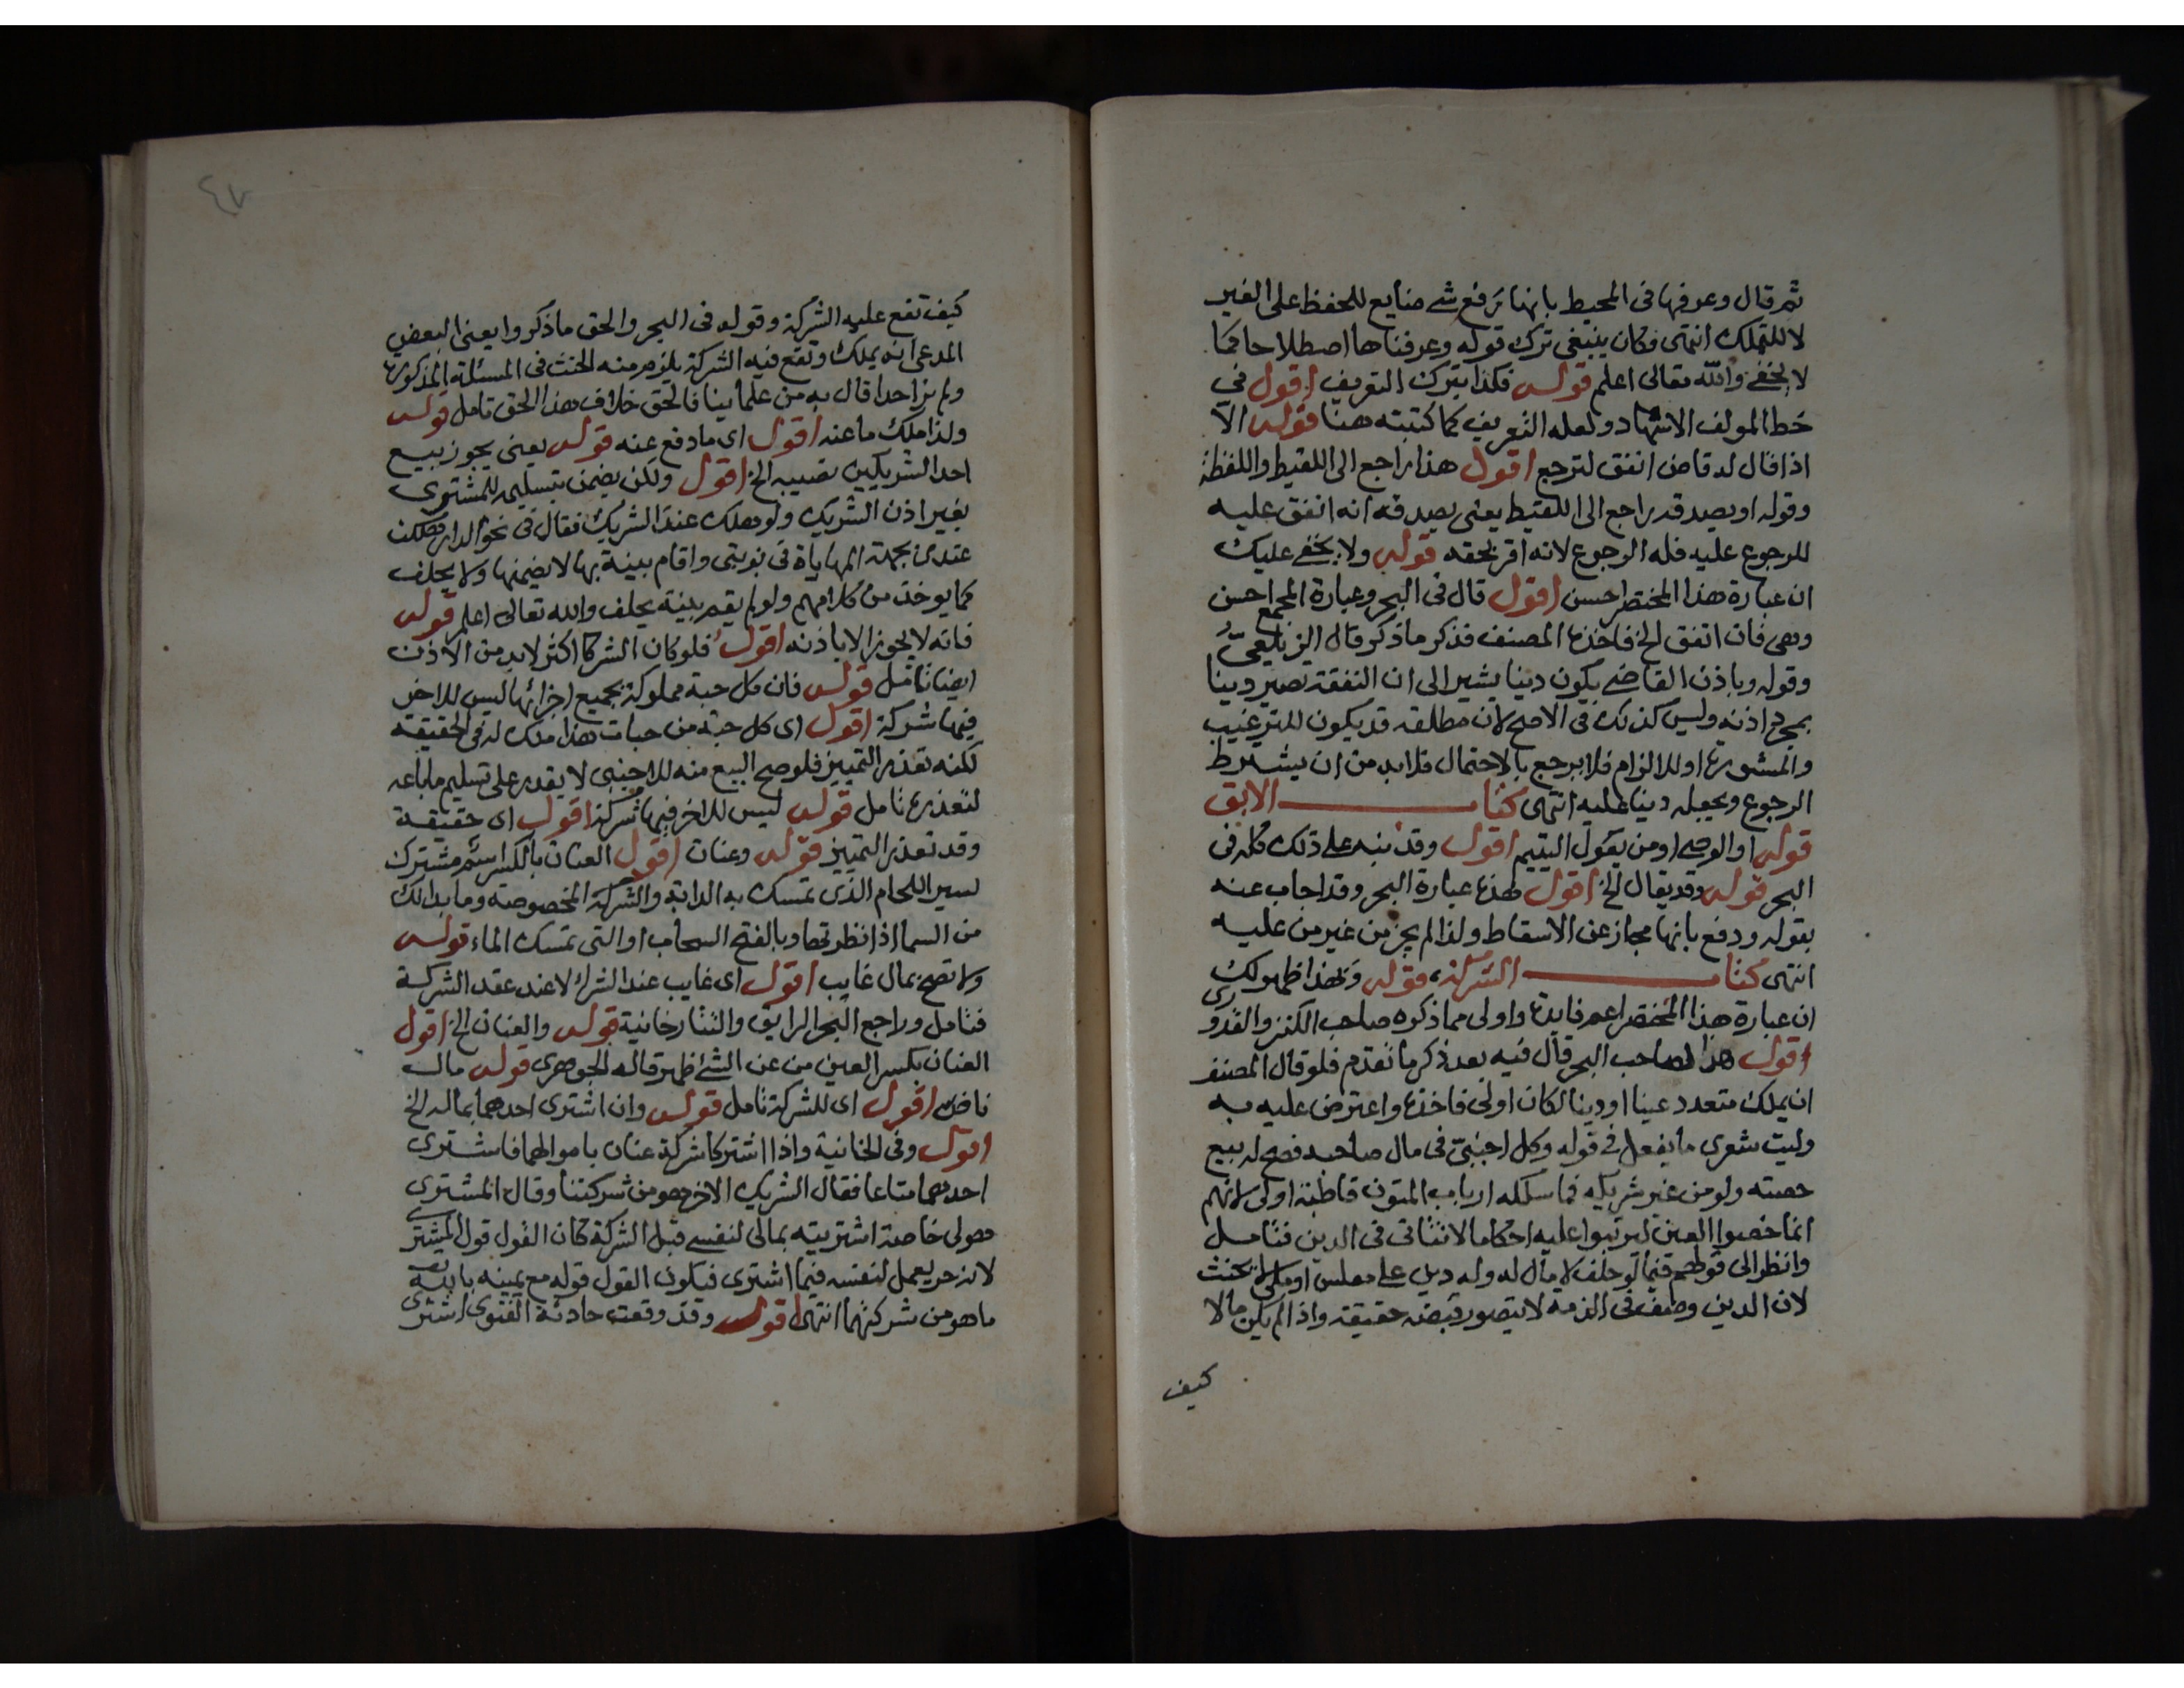 ثم قال وعرفها في المحيط بانها رفع شي ضايع للحفظ على الغير
لا للتملك انتهى فكان ينبغي ترك قوله وعرفناها اصطلاحا كما
لا يخفى والله تعالى اعلم قوله فكذا بترك التعريف اقول في
خط المولف الاشهاد ولعله التعريف كما كتبته هنا قوله الا
اذا قال له قاض انفق لترجع اقول هذا راجع الى اللقيط واللقطة
وقوله او يصدقه راجع الى اللقيط يعنى يصدقه انه انفق عليه
للرجوع عليه فله الرجوع لانه اقر بحقه قوله ولا يخفى عليك
ان عبارة هذا المختصر احسن اقول قال في البحر وعبارة المجمع احسن
وهى فان انفق الخ فاخذه المصنف فذكر ما ذكر قال الزيلعىّ
وقوله وباذن القاضي يكون دينا يشير الى ان النفقة تصير دينا
بمجرد اذنه وليس كذلك في الاصح لان مطلقه قد يكون للترغيب
والمشورة او للالزام فلا يرجع بالاحتمال فلا بد من ان يشترط
الرجوع ويجعله دينا عليه انتهى كتاب الابق
قوله او الوصي او من يعول اليتيم اقول وقد نبه على ذلك كله في
البحر قوله وقد يقال الخ اقول هذه عبارة البحر وقد اجاب عنه
بقوله ودفع بانها مجاز عن الاسقاط ولذا لم يجز من غير من عليه
انتهى كتاب الشركة قوله وبهذا ظهر لك
ان عبارة هذا المختصر اعم فايدة واولى مما ذكره صاحب الكنز والقدورى
اقول هذا لصاحب البحر قال فيه بعد ذكر ما تقدم فلو قال المصنف
ان يملك متعدد عينا او دينا لكان اولى فاخذه واعترض عليه به
وليت شعرى ما يفعل في قوله وكل اجنبيّ في مال صاحبه فصح له بيع
حصته ولو من غير شريكه فما سلكه ارباب المتون قاطبة اولى لانهم
انما خصوا العين ليرتبوا عليه احكاما لا تتاتى في الدين فتامل
وانظر الى قولهم فيما لو حلف لا مال له وله دين على مفلس او ملى لا يحنث
لان الدين وصف في الذمة لا يتصور قبضه حقيقة واذا لم يكن مالا
كيف
٤٧
كيف تقع عليه الشركة وقوله في البحر والحق ما ذكروا يعنى البعض
المدعى انه يملك وتقع فيه الشركة يلزم منه الحنث في المسئلة المذكورة
ولم نر احدا قال به من علمائنا فالحق خلاف هذا الحق تامل قوله
ولذا ملك ما عنه اقول اى ما دفع عنه قوله يعنى يجوز بيع
احد الشريكين نصيبه الخ اقول ولكن يضمن بتسليمه للمشترى
بغير اذن الشريك ولو هلك عند الشريك فقال في نحو الدار هلكت
عندى بجهة المهاياة في نوبتى واقام بينة بها لا يضمنها ولا يحلف
كما يوخذ من كلامهم ولو لم يقم بينة يحلف والله تعالى اعلم قوله
فانه لا يجوز الا باذنه اقول فلو كان الشركا اكثر لا بد من الاذن
ايضا تامل قوله فان كل حبة مملوكة بجميع اجزائها ليس للاخر
فيها شركة اقول اى كل حبة من حبات هذا ملك له في الحقيقة
لكنه تعذر التمييز فلو صح البيع منه للاجنبى لا يقدر على تسليم ما باعه
لتعذره تامل قوله ليس للاخر فيها شركة اقول اى حقيقة
وقد تعذر التمييز قوله وعنان اقول العنان بالكسر اسم مشترك
لسير اللجام الذى تمسك به الدابة والشركة المخصوصة وما بدا لك
من السما اذا نظرتها وبالفتح السحاب او التى تمسك الماء قوله
ولا تصح بمال غايب اقول اى غايب عند الشرا لا عند عقد الشركة
فتامل وراجع البحر الرايق والتتارخانية قوله والعنان الخ اقول
العنان بكسر العين من عن الشئ ظهر قاله الجوهرى قوله مال
ناض اقول اى للشركة تامل قوله وان اشترى احدهما بماله الخ
اقول وفي الخانية واذا اشتركا شركة عنان باموالهما فاشترى
احدهما متاعا فقال الشريك الاخر هو من شركتنا وقال المشترى
هو لى خاصة اشتريته بمالى لنفسى قبل الشركة كان القول قول المشترى
لانه حر يعمل لنفسه فيما اشترى فيكون القول قوله مع يمينه بالله
ما هو من شركتهما انتهى اقول وقد وقعت حادثة الفتوى اشترى